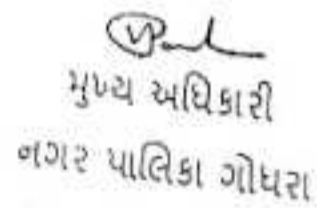 મુખ્ય અધિકારી
નગર પાલિકા ગોધરા